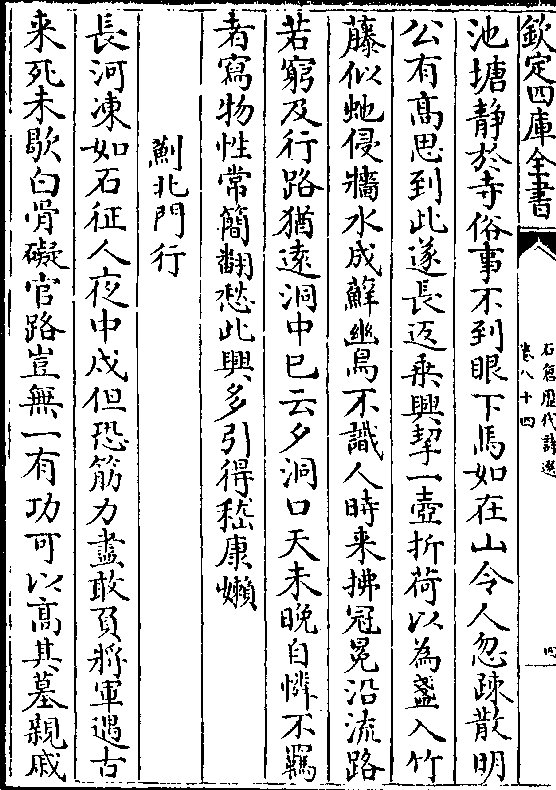 欽定四庫全書
石倉歷代詩選
卷八十四
四
池塘静於寺俗事不到眼下馬如在山令人忽疎散明
公有髙思到此遂長返乗興挈一壺折荷以為盞入竹
藤似虵侵牆水成蘚幽鳥不識人時来拂冠冕沿流路
若窮及行路猶逺洞中已云夕洞口天未晩自憐不羈
者寫物性常簡翻愁此興多引得嵇康嬾
薊北門行
長河凍如石征人夜中戍但恐筋力盡敢負將軍遇古
来死未歇白骨礙官路豈無一有功可以髙其墓親戚